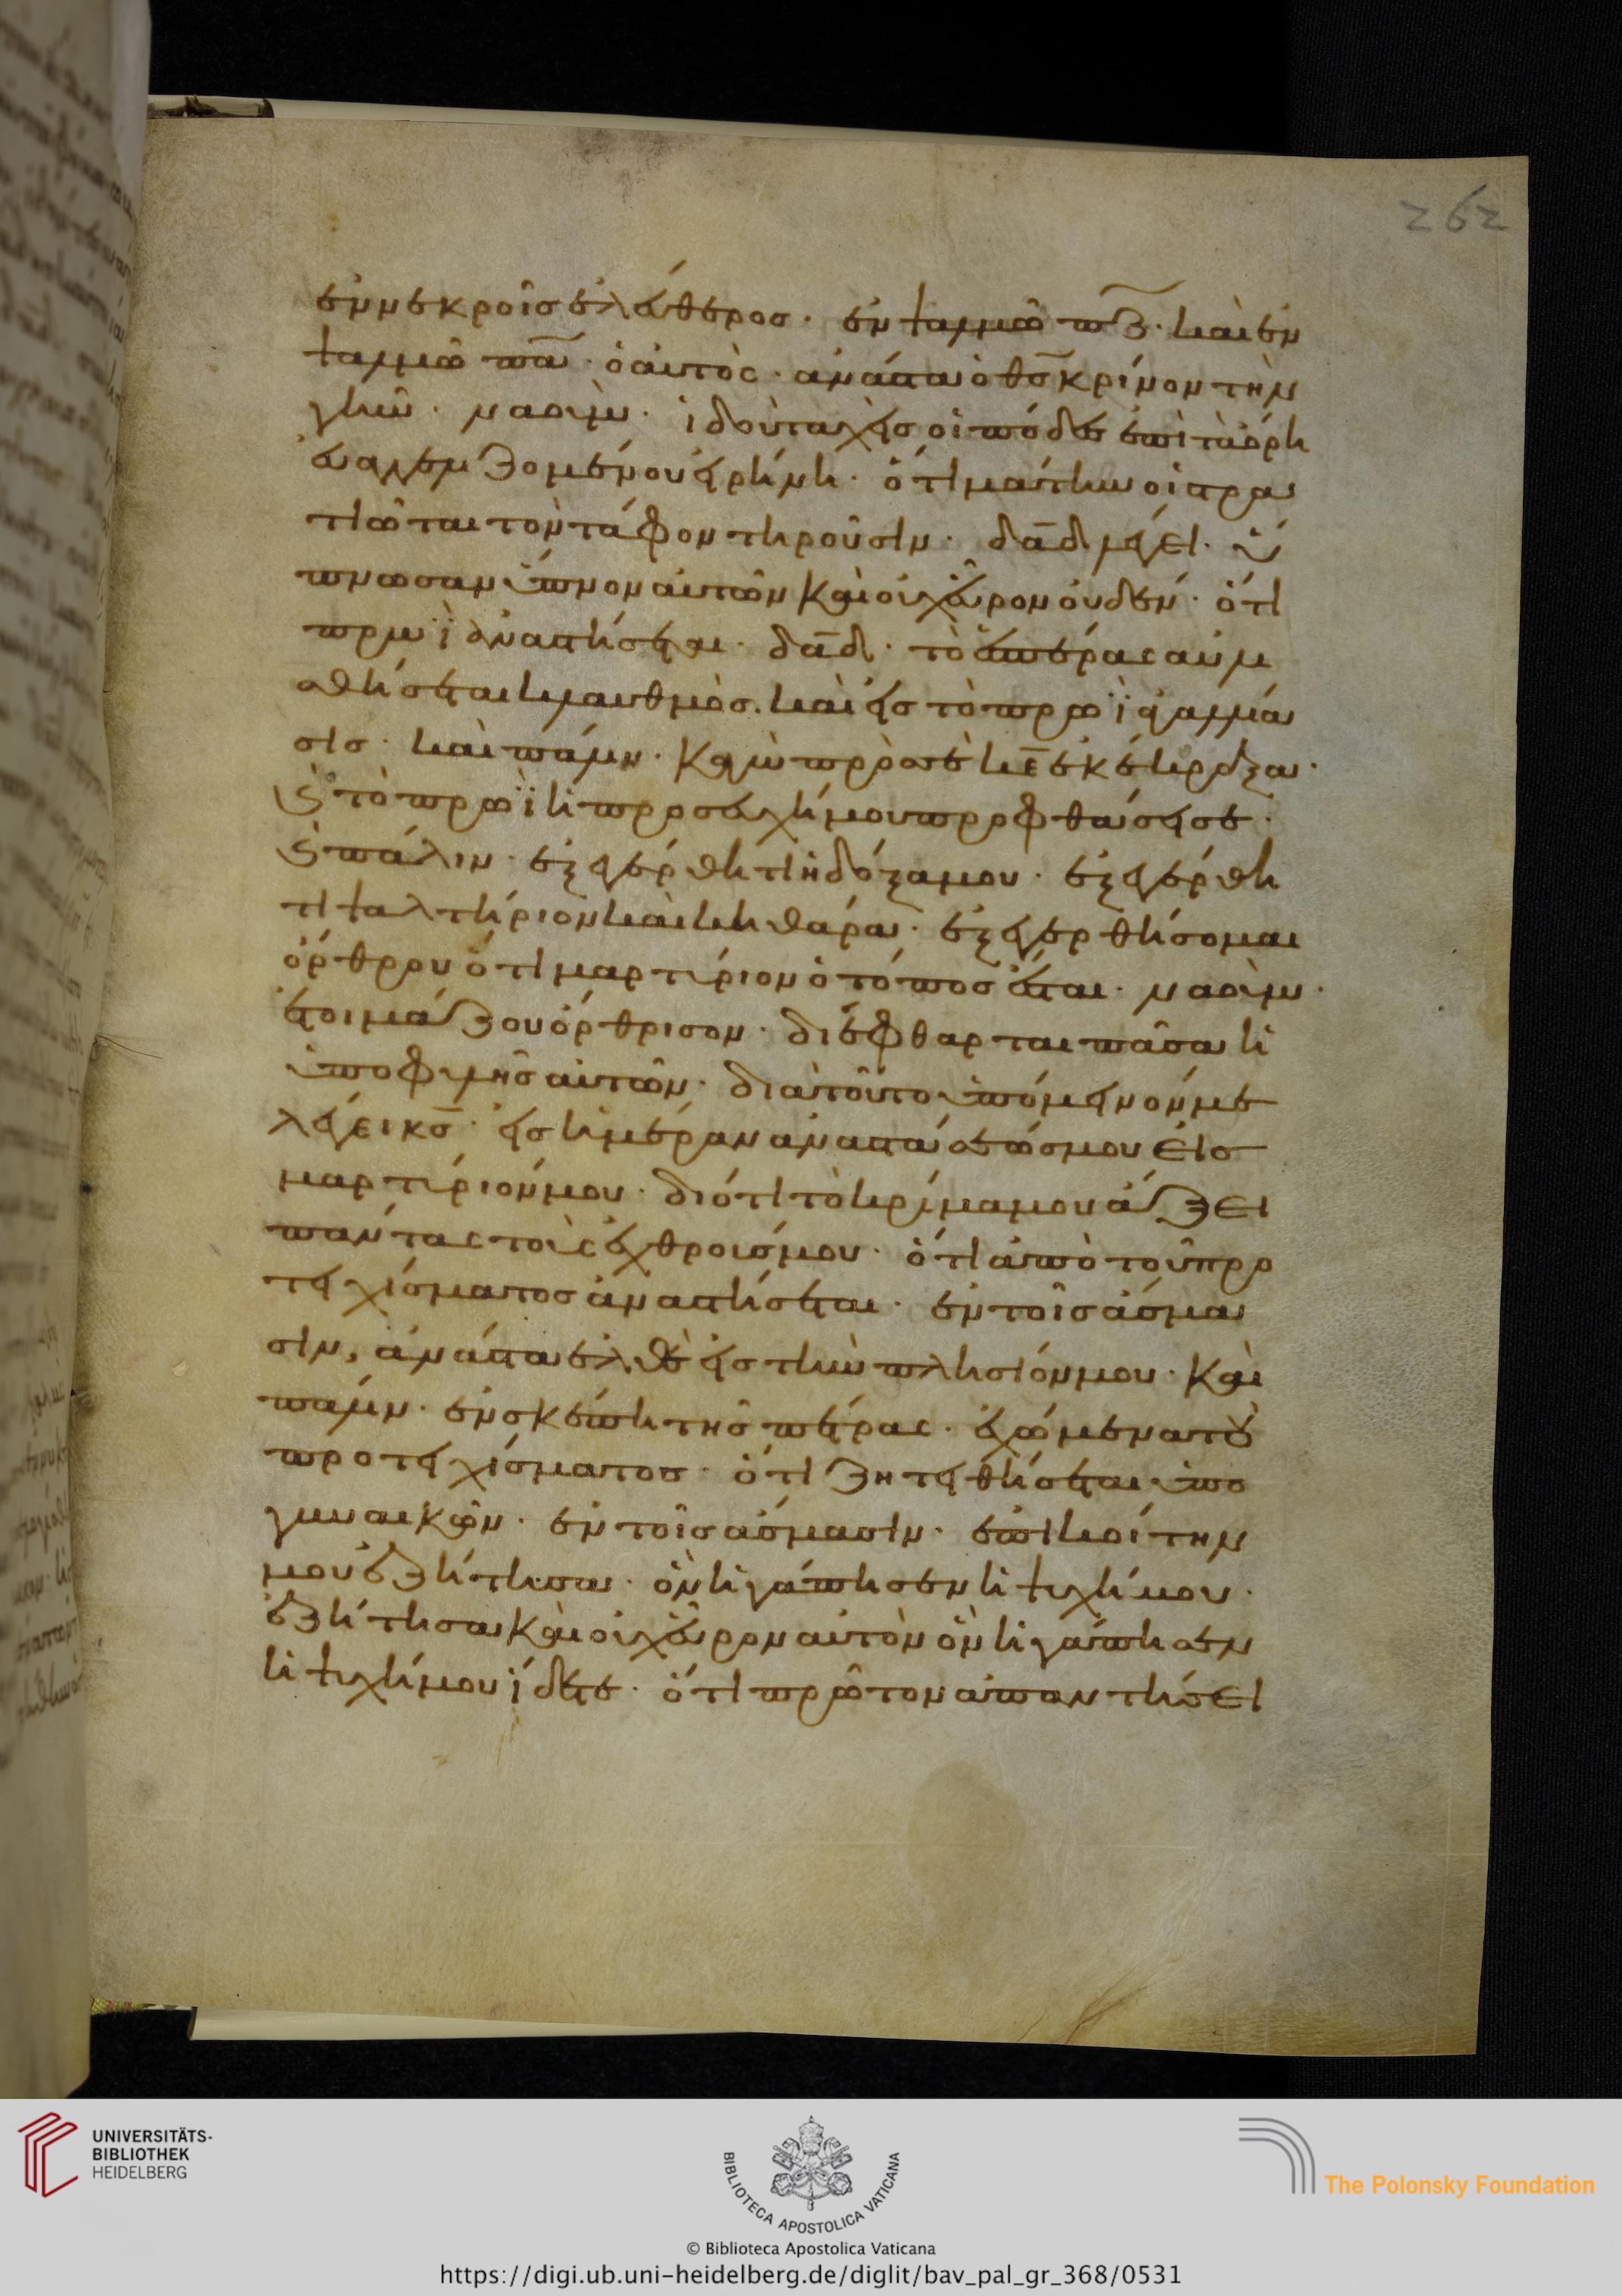 262
ἐν νεκροῖς ἐλεύθερος· ἐν ψαλμῶ πζ· καὶ ἐν
ψαλμῶ πα· ὁ αὐτὸς· ἀνάστα ὁ θς κρίνον τὴν
γῆν· ναοὺμ· ἰδοὺ ταχεῖς οἱ πόδες ἐπὶ τὰ ὄρη
εὐαγγελιζομένου εἰρήνη· ὅτι μάτην οἱ στρα
τιῶται τὸν τάφον τηροῦσιν· δαδ μέλει· ὕ
πνωσαν ὕπνον αὐτῶν καὶ οὐχ εὗρον οὐδέν· ὅτι
πρωῒ ἀναστήσεται· δαδ· τὸ ἑσπέρας αὐλι
σθήσεται κλαυθμὸς. καὶ εἰς τὸ πρωῒ ἀγαλλία
σις· καὶ πάλιν· κἀγὼ πρὸς σὲ κε ἐκέκραξα·
καὶ τὸ πρωῒ ἡ προσευχή μου προφθάσει σε·
καὶ πάλιν· ἐξεγέρθητι ἡ δόξα μου· ἐξεγέρθη
τι ψαλτήριον καὶ κιθάρα· ἐξεγερθήσομαι
ὄρθρου ὅτι μαρτύριον ὁ τόπος ἔσται· ναοὺμ·
ἑτοιμάζου ὄρθρισον· διέφθαρται πᾶσα ἡ
ὑποφυλὴς αὐτῶν· διὰ τοῦτο ὑπόμεινόν με
λέγει κς· εἰς ἡμέραν ἀναστάσεώς μου εἰς
μαρτύριόν μου· διότι τὸ κρίμα μου ἄξει
πάντας τοὺς ἐχθρούς μου· ὅτι ἀπὸ τοῦ προ
τειχίσματος ἀναστήσεται· ἐν τοῖς ἄσμα
σιν, ἀνάστα ἐλθὲ εἰς τὴν πλησίον μου· καὶ
πάλιν· ἐν σκέπη τῆς πέτρας· ἐχόμενα τοῦ
προτειχίσματος· ὅτι ζητηθήσεται ὑπὸ
γυναικῶν· ἐν τοῖς ἄσμασιν· ἐπὶ κοίτην
μου ἐζήτησα· ὃν ἠγάπησεν ἡ ψυχή μου·
ἐζήτησα καὶ οὐχ εὗρον αὐτὸν ὃν ἠγάπησεν
ἡ ψυχή μου ἴδετε· ὅτι πρῶτον ἀπαντήσει
UNIVERSITÄTS-
BIBLIOTHEK
HEIDELBERG
BIBLIOTECA APOSTOLICA VATICANA
The Polonsky Foundation
© Biblioteca Apostolica Vaticana
https://digi.ub.uni-heidelberg.de/diglit/bav_pal_gr_368/0531